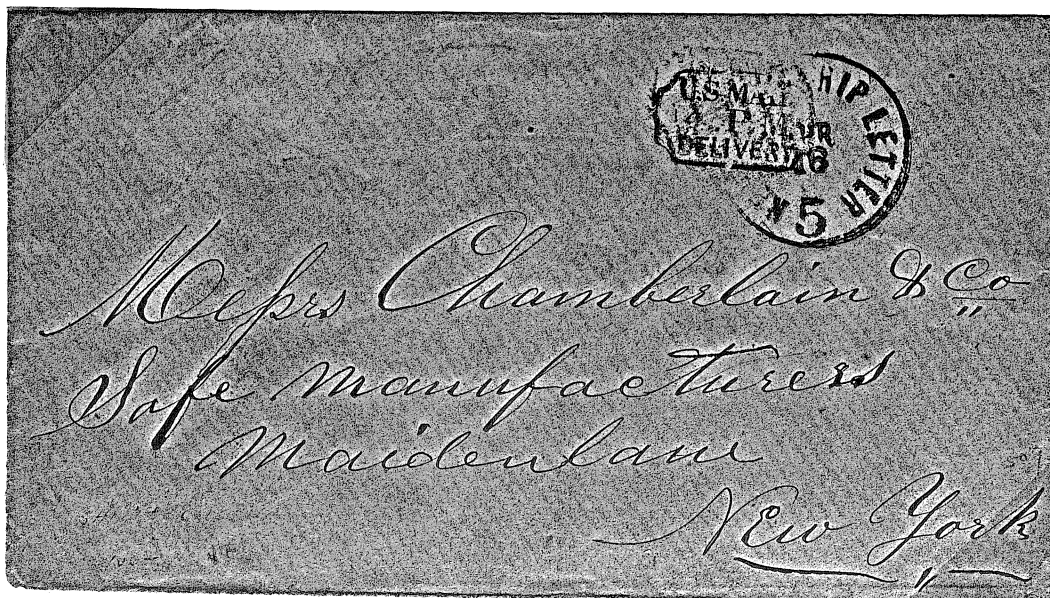 U.S MAIL
P.M
DELIVERY
HIP LETTER
5
Messrs Chamberlain & Co
Safe Manufacturers
Maidenlane
New York